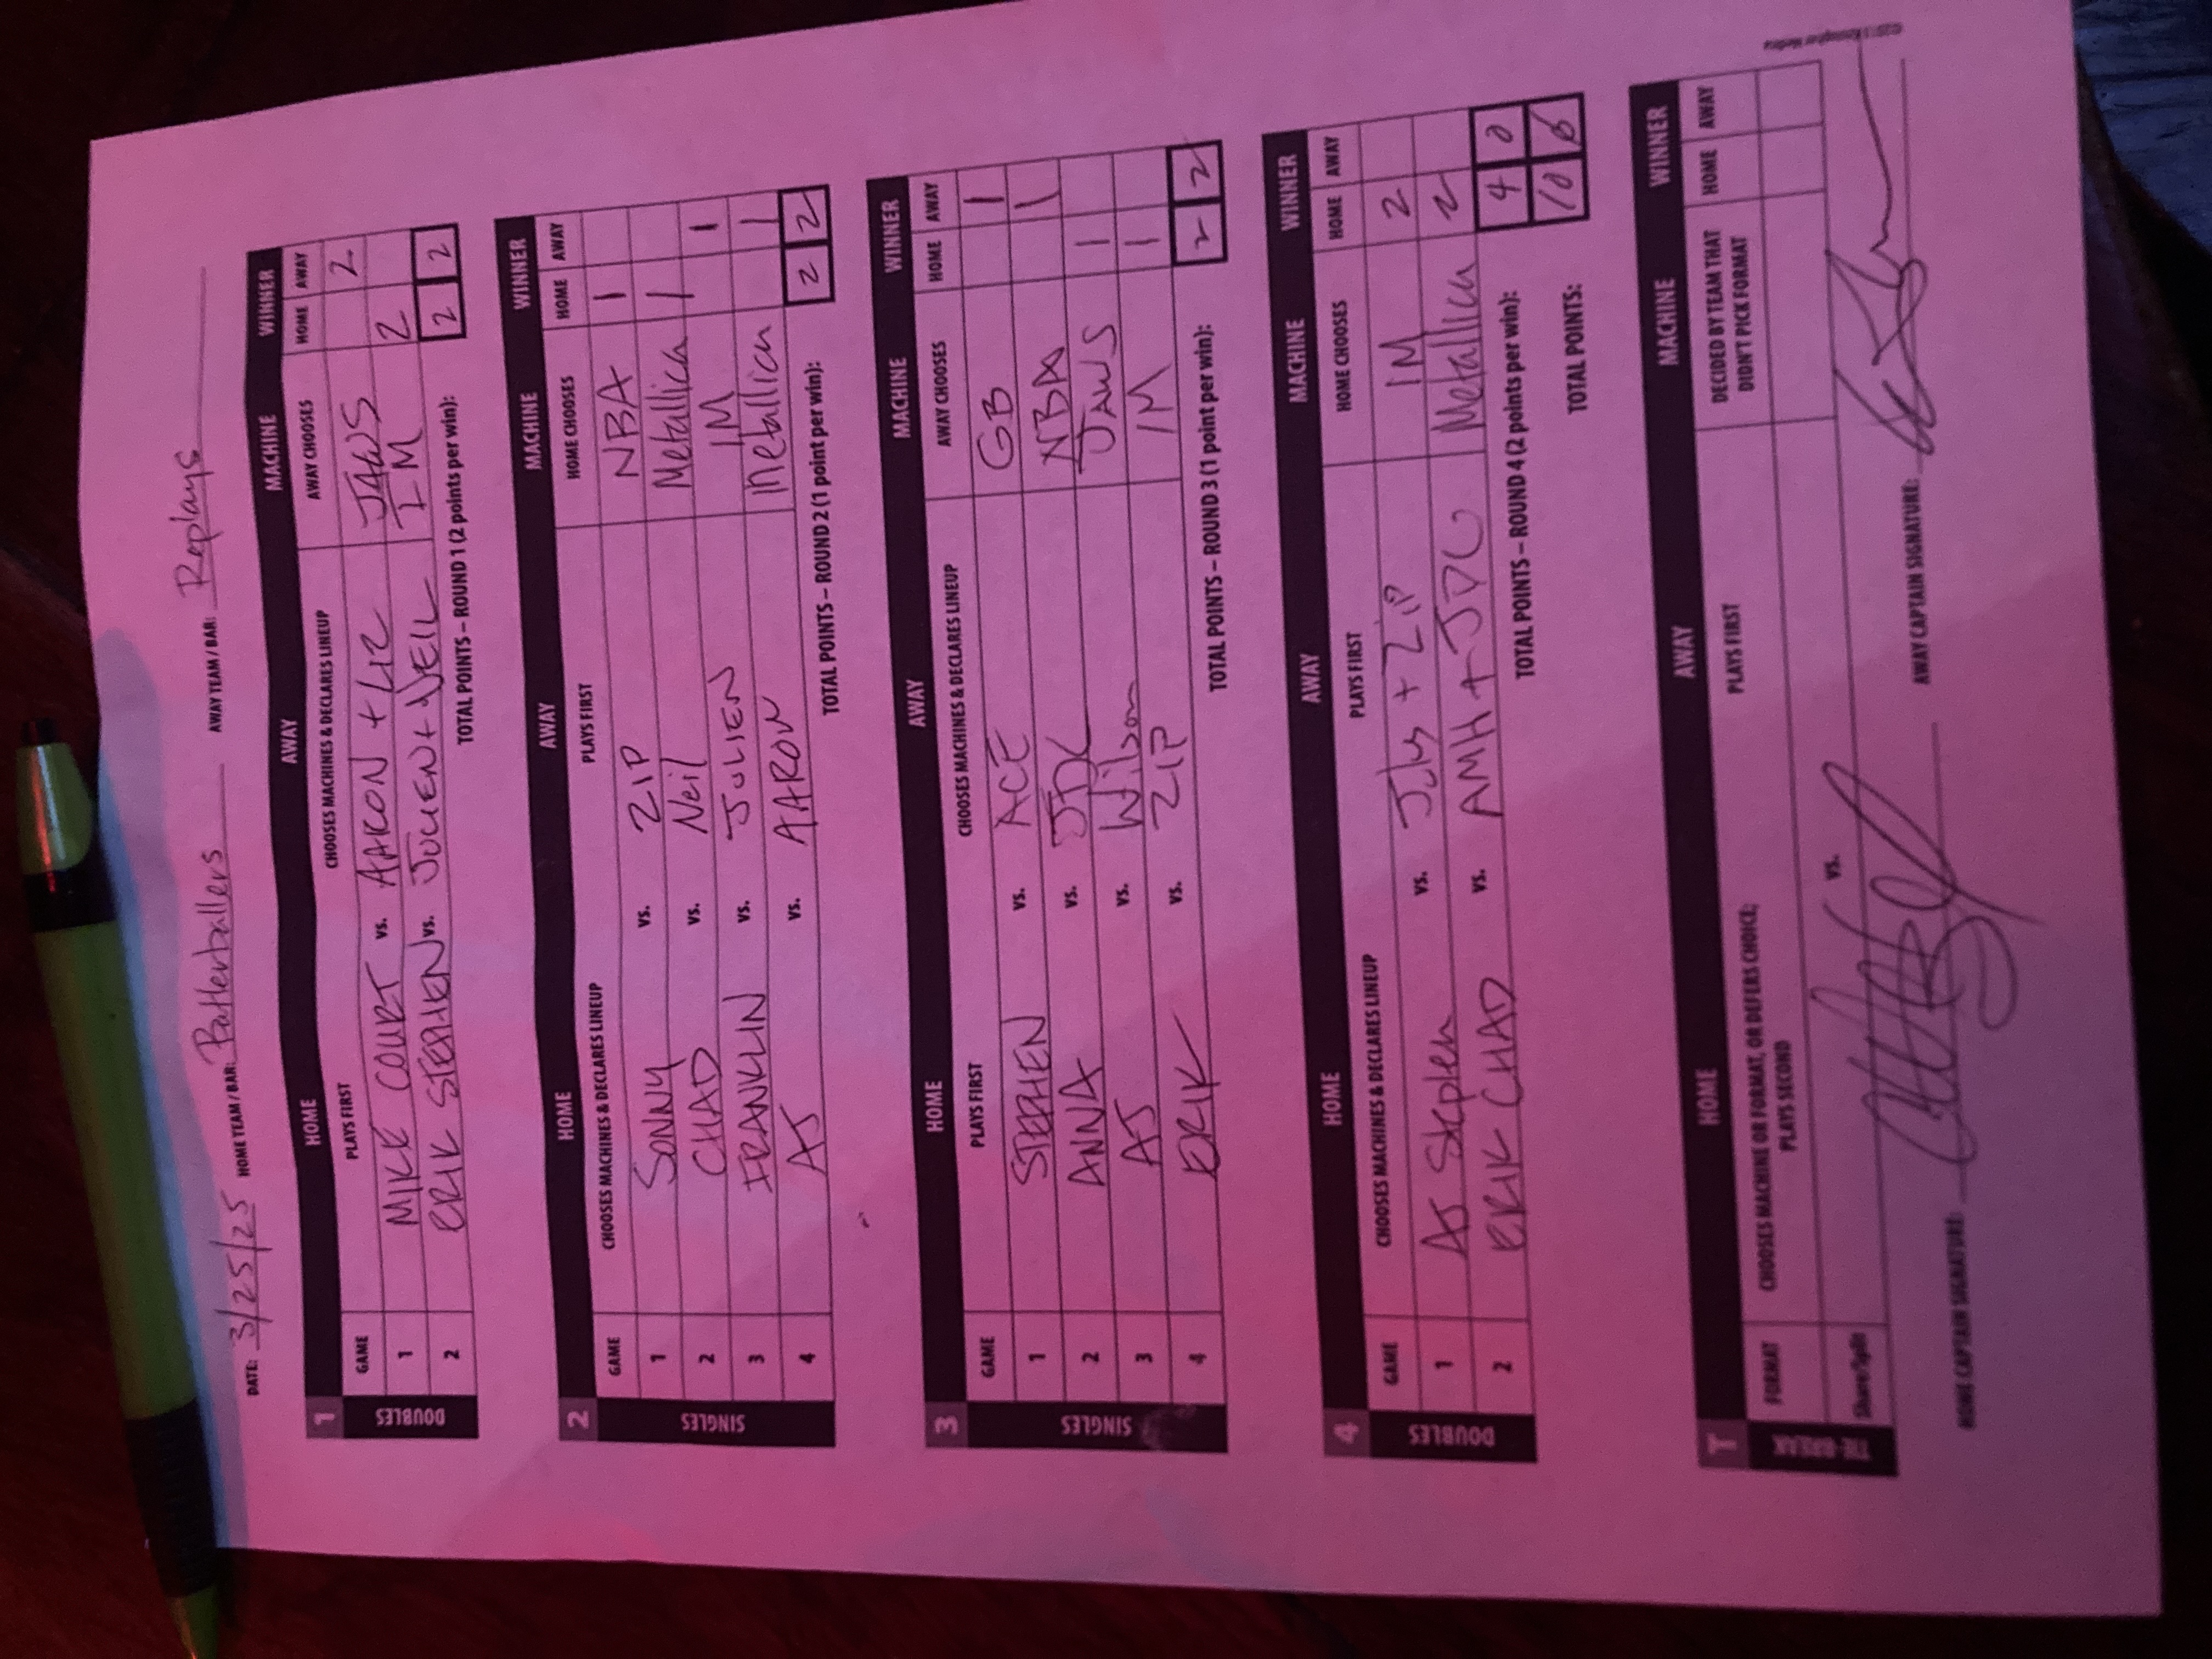 DATE: 3/25/25 HOME TEAM / BAR: Batterballers AWAY TEAM / BAR: Replays
1 HOME AWAY MACHINE WINNER
GAME PLAYS FIRST CHOOSES MACHINES & DECLARES LINEUP AWAY CHOOSES HOME AWAY
DOUBLES
1 MIKE COURT vs. AARON + LIZ JAWS 2
2 ERIK STEPHEN vs. JULIEN + NEIL IM 2
TOTAL POINTS – ROUND 1 (2 points per win): 2 2
2 HOME AWAY MACHINE WINNER
GAME CHOOSES MACHINES & DECLARES LINEUP PLAYS FIRST HOME CHOOSES HOME AWAY
SINGLES
1 SONNY vs. ZIP NBA 1
2 CHAD vs. Neil Metallica 1
3 FRANKLIN vs. JULIEN IM 1
4 AJ vs. AARON Metallica 1
TOTAL POINTS – ROUND 2 (1 point per win): 2 2
3 HOME AWAY MACHINE WINNER
GAME PLAYS FIRST CHOOSES MACHINES & DECLARES LINEUP AWAY CHOOSES HOME AWAY
SINGLES
1 STEPHEN vs. ACE GB 1
2 ANNA vs. JDC NBA 1
3 AJ vs. Wilson JAWS 1
4 ERIK vs. ZIP IM 1
TOTAL POINTS – ROUND 3 (1 point per win): 2 2
4 HOME AWAY MACHINE WINNER
GAME CHOOSES MACHINES & DECLARES LINEUP PLAYS FIRST HOME CHOOSES HOME AWAY
DOUBLES
1 AJ Stephen vs. + ZIP IM 2
2 ERIK CHAD vs. AMH + JDC Metallica 2
TOTAL POINTS – ROUND 4 (2 points per win): 4 0
TOTAL POINTS: 10 6
T HOME AWAY MACHINE WINNER
FORMAT CHOOSES MACHINE OR FORMAT, OR DEFERS CHOICE; PLAYS FIRST DECIDED BY TEAM THAT HOME AWAY
PLAYS SECOND DIDN'T PICK FORMAT
TIE-BREAK
Share/Split vs.
HOME CAPTAIN SIGNATURE: AWAY CAPTAIN SIGNATURE: